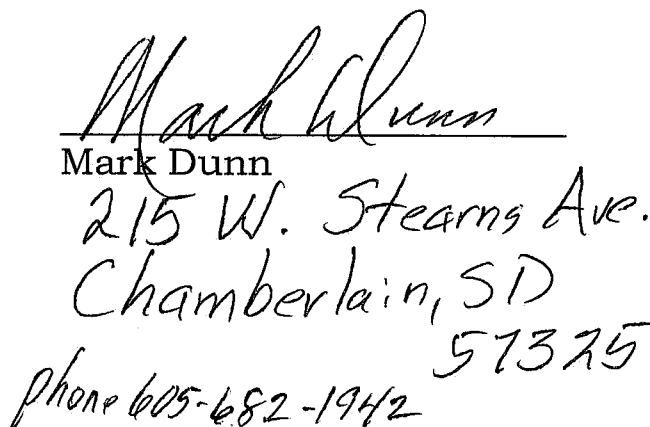 Mark Dunn
Mark Dunn
215 W. Stearns Ave.
Chamberlain, SD
57325
phone 605-682-1942